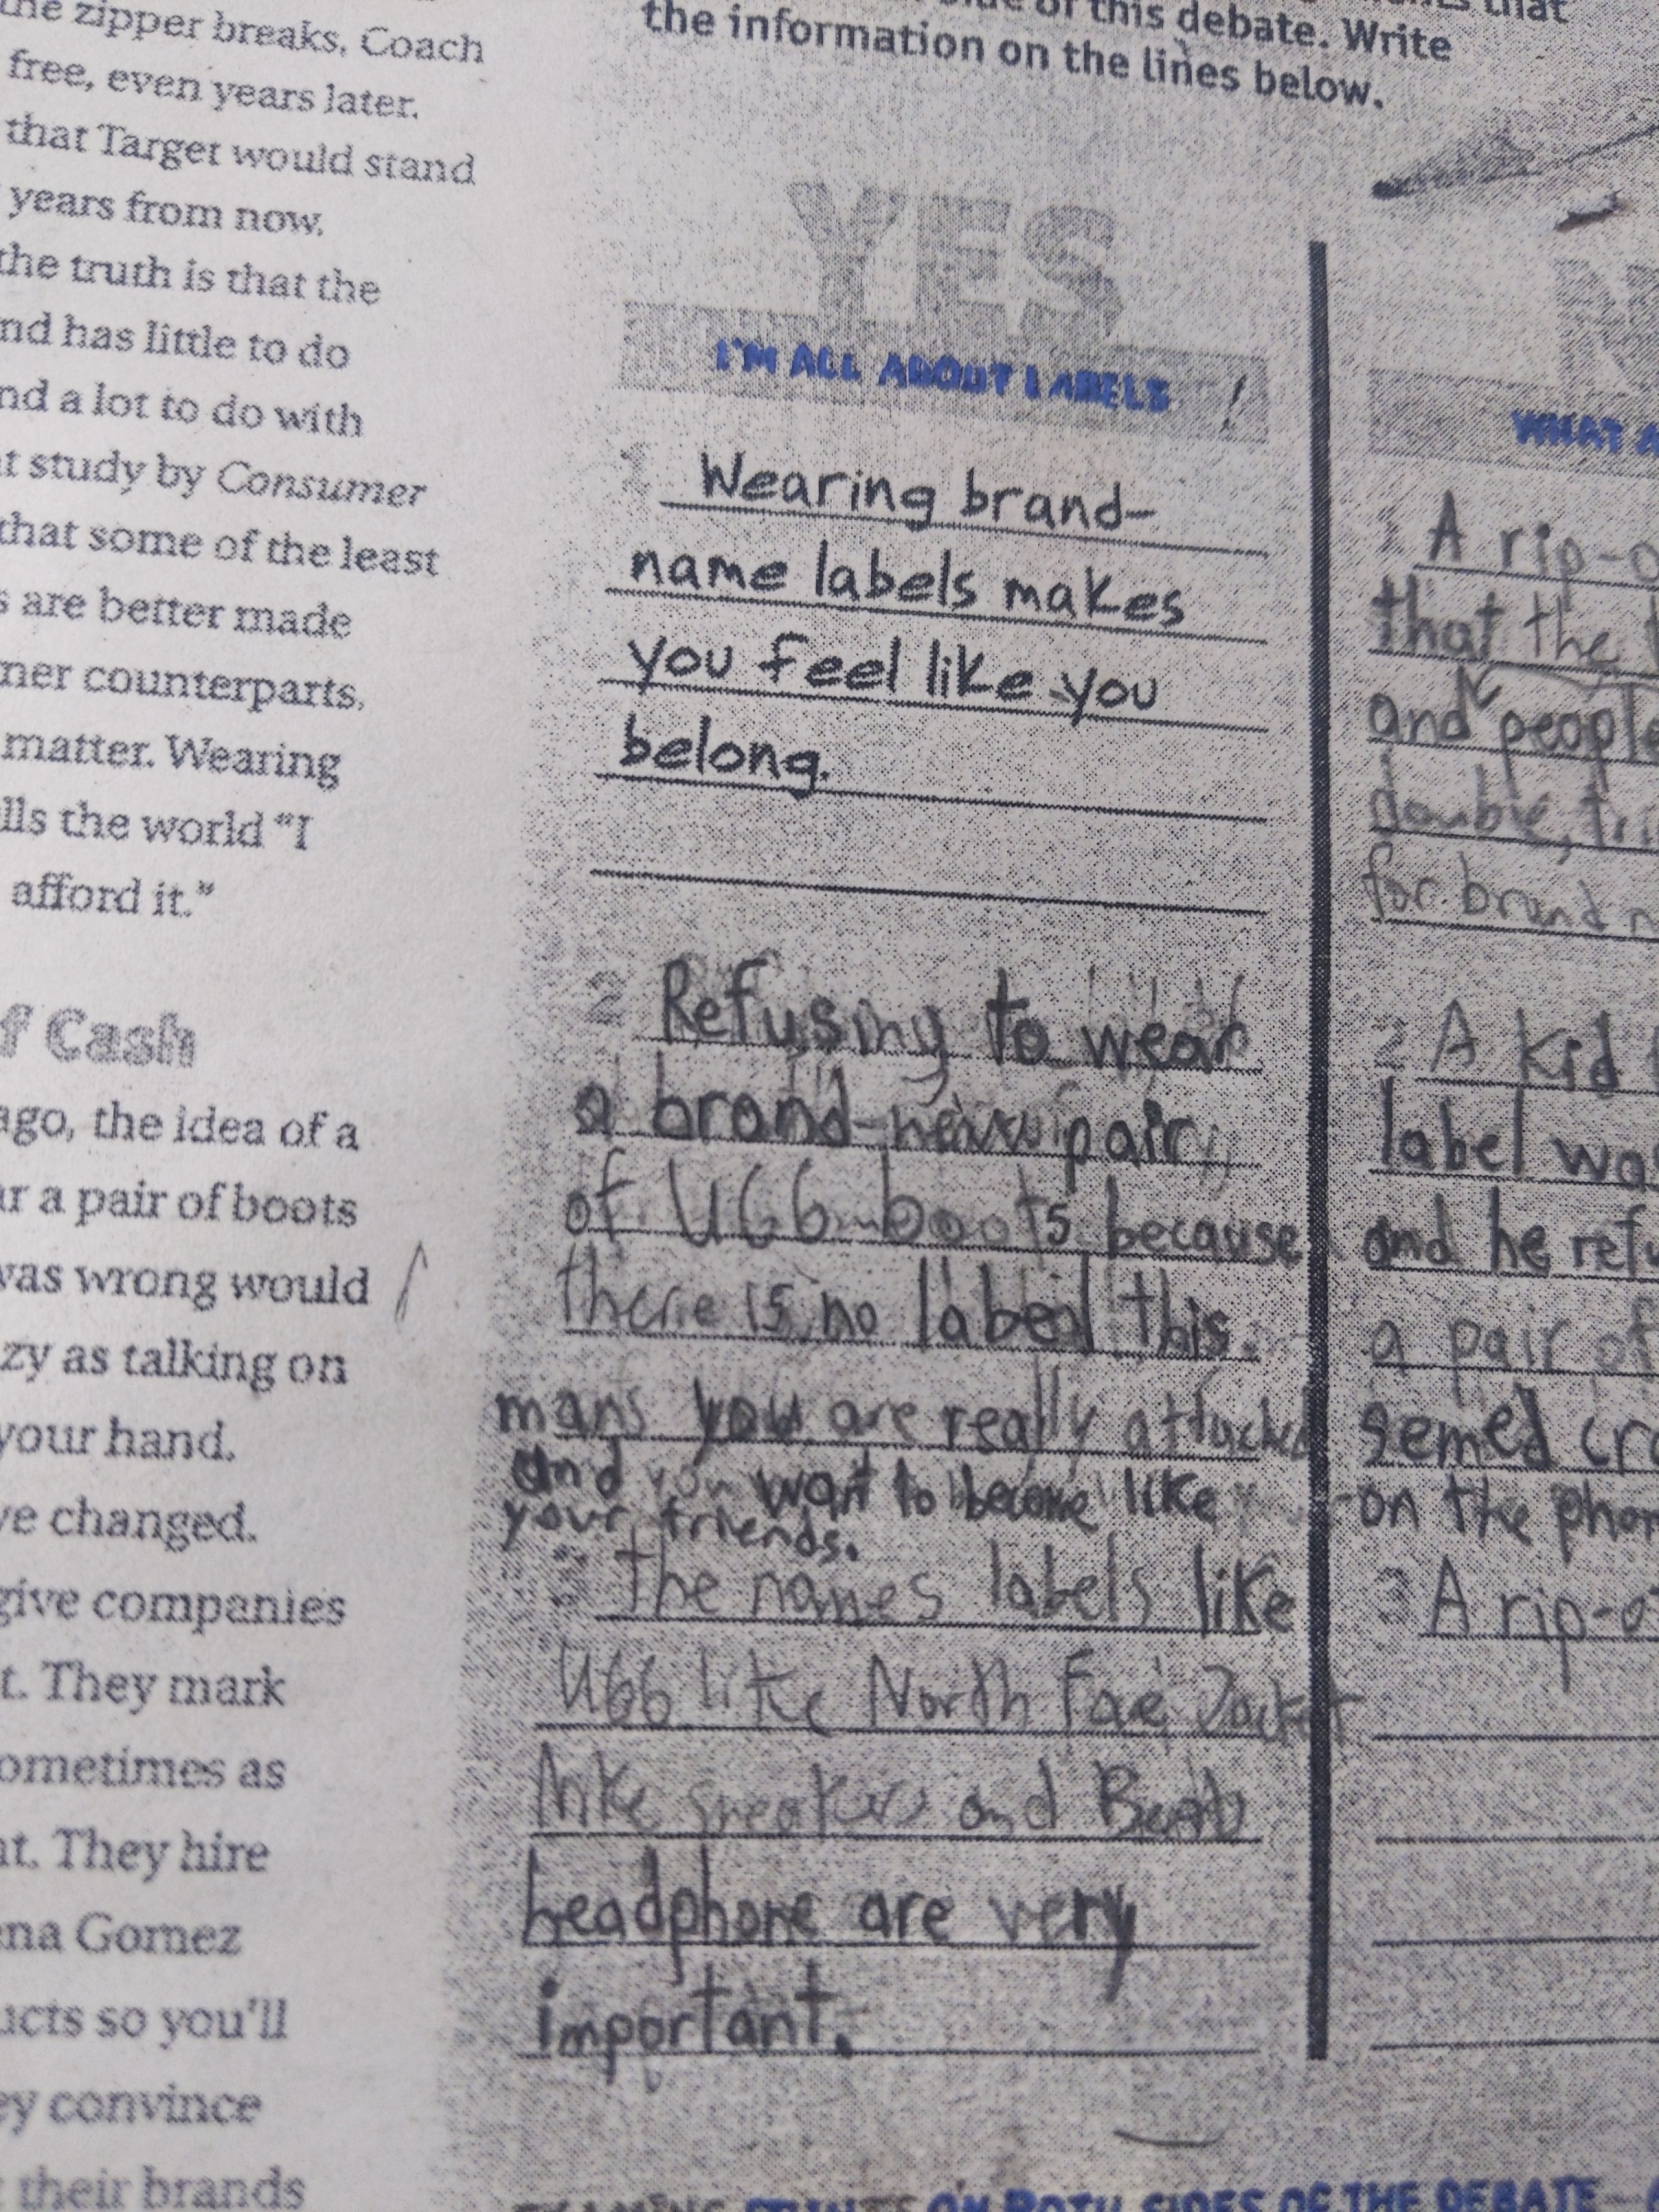 the zipper breaks, Coach
free, even years later.
that Target would stand
years from now.
the truth is that the
nd has little to do
nd a lot to do with
t study by Consumer
that some of the least
s are better made
ner counterparts.
matter. Wearing
lls the world “I
afford it.”
f Cash
ago, the idea of a
ar a pair of boots
was wrong would
zy as talking on
your hand.
ve changed.
give companies
t. They mark
ometimes as
nt. They hire
ena Gomez
ucts so you'll
ey convince
their brands
that
of this debate. Write
the information on the lines below.
YES
I'M ALL ABOUT LABELS !
1 Wearing brand-
name labels makes
you feel like you
belong.
2 Refusing to wear
a brand-new pair
of UGG boots because
there is no label this.
mans you are really attached
and you want to become like
your friends.
3 The names labels like
UGG like North Face Jacket
Nike sneakers and Beats
headphone are very
important.
N
WHAT A
1 A rip-o
that the
and people
double, tri
for brand n
2 A kid
label wa
and he refu
a pair of
semed cra
on the phon
3 A rip-o
ON BOTH SIDES OF THE DEBATE